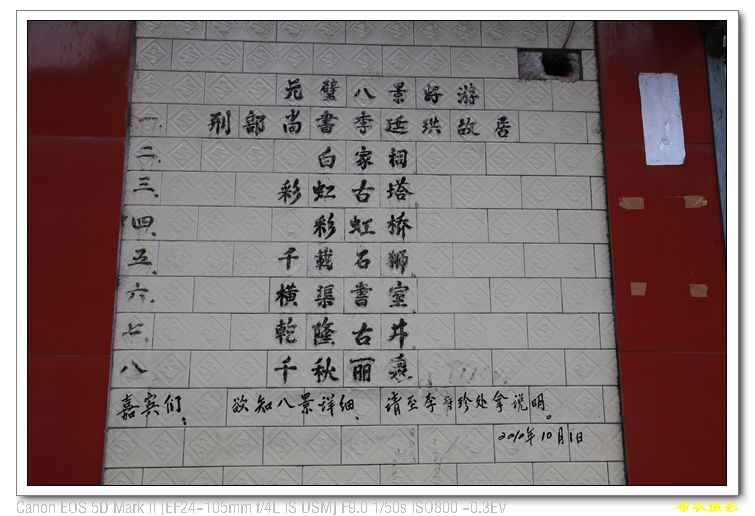 苑壁八景好游
一、刑部尚书李廷珙故居
二、白家祠
三、彩虹古塔
四、彩虹桥
五、千载石狮
六、横渠書室
七、乾隆古井
八、千秋丽
嘉宾们：欲知八景详细、请至李珍处拿说明。
2010年10月1日
Canon EOS 5D Mark II [EF24-105mm f/4L IS USM] F9.0 1/50s ISO800 -0.3EV
布衣摄影